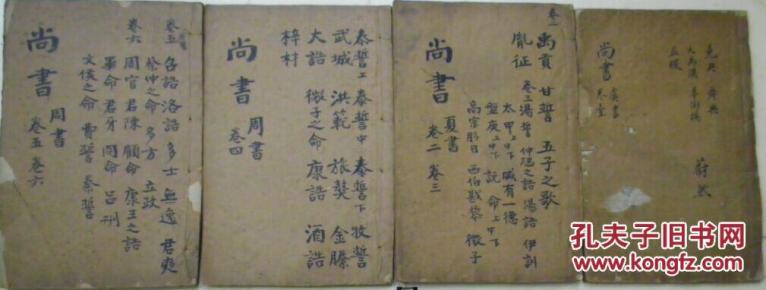 舜典
大禹謨
益稷
蔚然
尚書 虞書
禹貢 甘誓 五子之歌
胤征
卷三湯誓 仲虺之誥 湯誥 伊訓
太甲上中下 咸有一德
盤庚上中下 說命上中下
高宗肜日 西伯戡黎 微子
夏書
尚書 卷二 卷三
泰誓上 泰誓中 泰誓下 牧誓
武城 洪範 旅獒 金縢
大誥 微子之命 康誥 酒誥
梓材
周書
尚書 卷四
卷五 召誥 洛誥 多士 無逸 君奭
蔡仲之命 多方 立政
卷六 周官 君陳 顧命 康王之誥
畢命 君牙 冏命 呂刑
文侯之命 費誓 秦誓
周書
尚書 卷五 卷六
孔夫子旧书网
www.kongfz.com